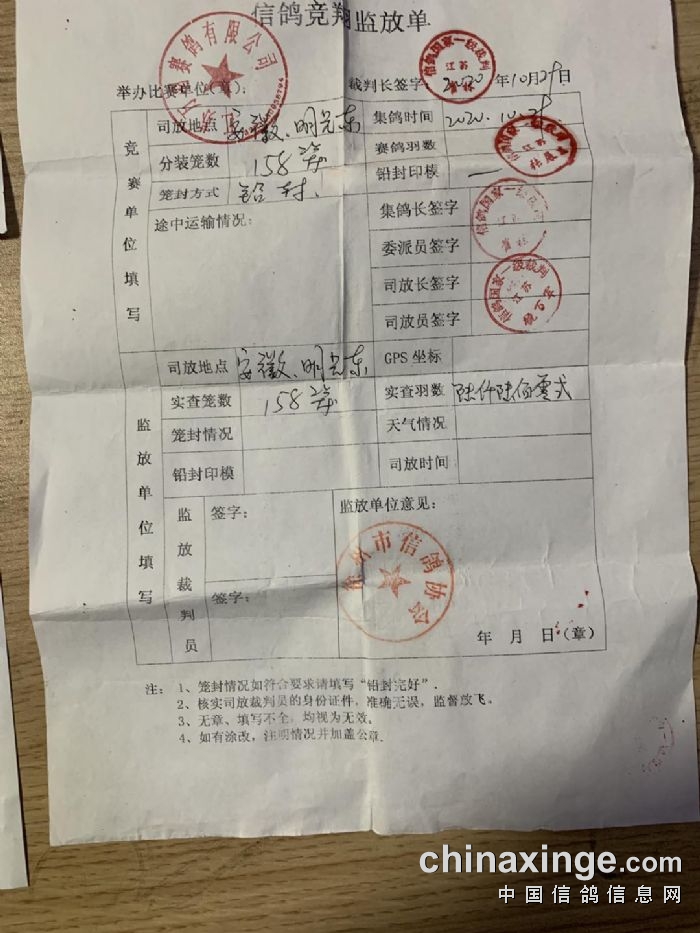 信鸽竞翔监放单
赛鸽有限公司
举办比赛单位(章): 裁判长签字: 2020 年10月29日
信鸽国家一级裁判
江苏
竞赛单位填写
司放地点 安徽、明光东 集鸽时间 2020.10.29
分装笼数 158笼 赛鸽羽数
笼封方式 铅封、 铅封印模 —
途中运输情况: 集鸽长签字
信鸽国家一级裁判
江苏
委派员签字
司放长签字
信鸽国家一级裁判
江苏
司放员签字
监放单位填写
司放地点 安徽、明光东 GPS 坐标
实查笼数 158笼 实查羽数 陆仟陆佰零弍
笼封情况 天气情况
铅封印模 司放时间
监放裁判员
签字: 监放单位意见:
州市信鸽协会
签字:
年 月 日(章)
注: 1、笼封情况如符合要求请填写“铅封完好”.
2、核实司放裁判员的身份证件, 准确无误, 监督放飞。
3、无章、填写不全, 均视为无效。
4、如有涂改, 注明情况并加盖公章.
chinaxinge.com
中国信鸽信息网